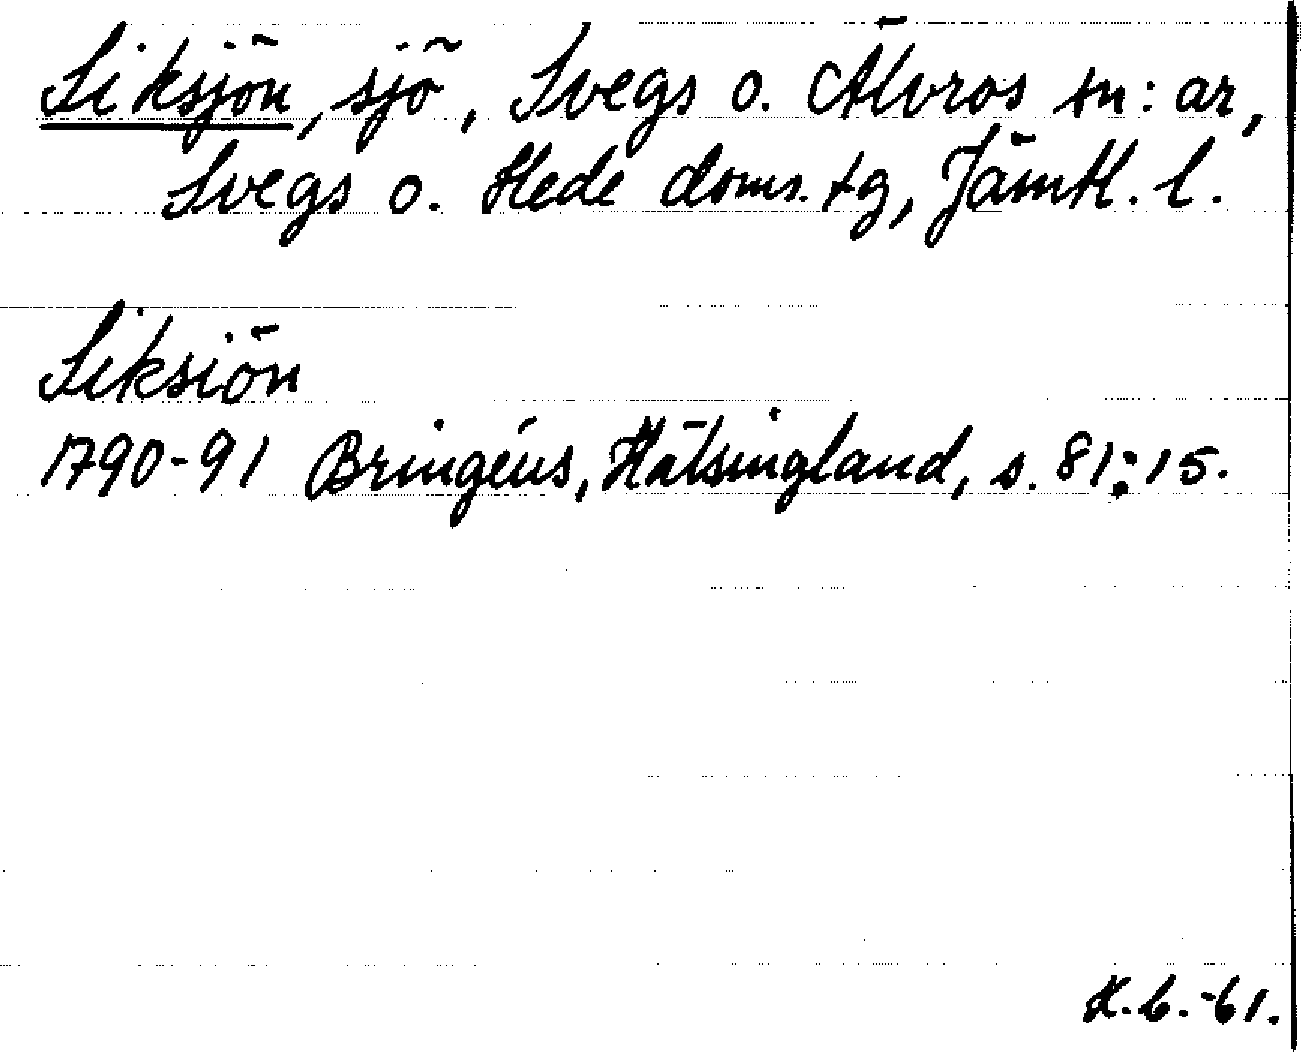 Siksjön, sjö, Svegs o. Älvros sn:ar,
Svegs o. Hede doms. tg, Jämtl. l.
Siksiön
1790-91 Bringéus, Hälsingland, s. 81:15.
K.b.-61.